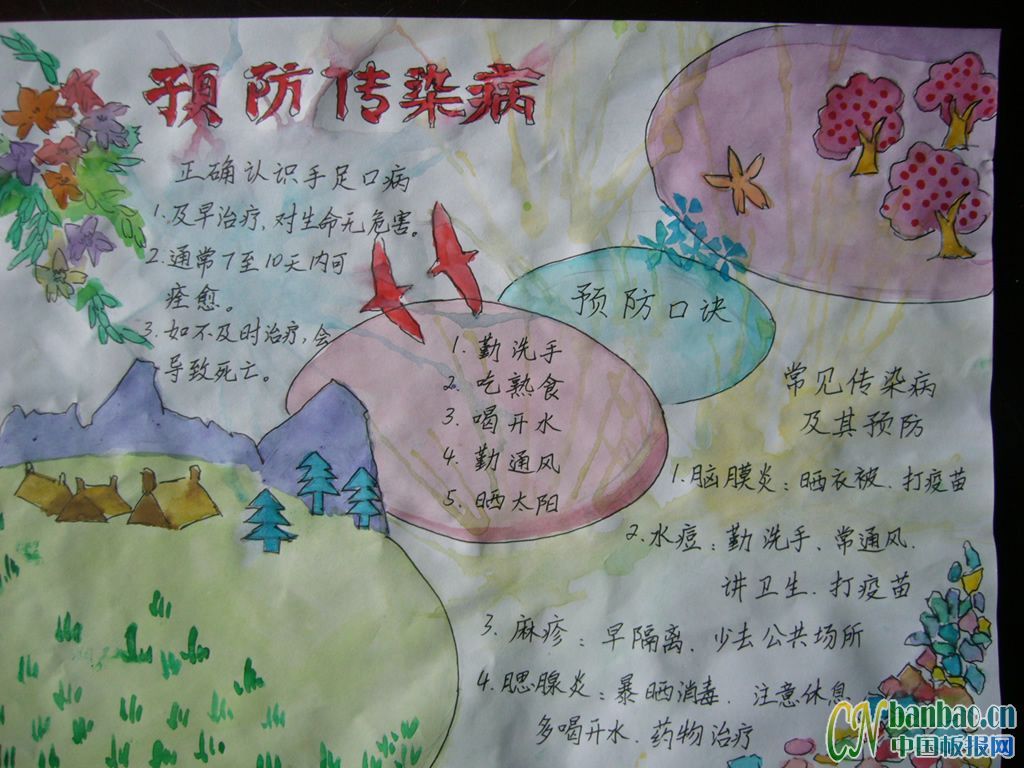 预防传染病
正确认识手足口病
1.及早治疗,对生命无危害。
2.通常7至10天内可
痊愈。
3.如不及时治疗,会
导致死亡。
预防口诀
1.勤洗手
2.吃熟食
3.喝开水
4.勤通风
5.晒太阳
常见传染病
及其预防
1.脑膜炎:晒衣被、打疫苗
2.水痘:勤洗手、常通风、
讲卫生、打疫苗
3.麻疹:早隔离、少去公共场所
4.腮腺炎:暴晒消毒、注意休息
多喝开水、药物治疗
CN banbao.cn
中国板报网